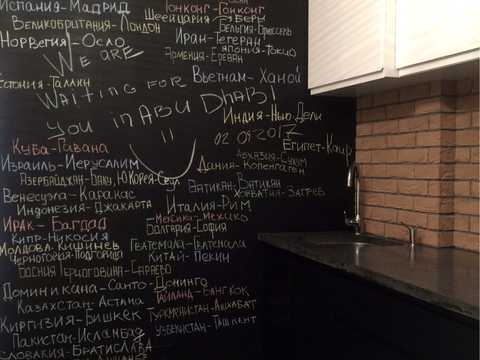 Испания-Мадрид
Гонконг-Гонконг
Великобритания-Лондон
Швейцария-Берн
Бельгия-Брюссель
Норвегия-Осло
Иран-Тегеран
Япония-Токио
Армения-Ереван
We are
Эстония-Таллин
Вьетнам-Ханой
Waiting for
you in Abu Dhabi
Индия-Нью Дели
02.09.2017
Египет-Каир
Куба-Гавана
Абхазия-Сухум
Израиль-Иерусалим
Дания-Копенгаген
Азербайджан-Баку, Ю.Корея-Сеул
Ватикан-Ватикан
Венесуэла-Каракас
Хорватия-Загреб
Индонезия-Джакарта
Италия-Рим
Ирак-Багдад
Мексика-Мехико
Болгария-София
Кипр-Никосия
Молдова-Кишинев
Гватемала-Гватемала
Черногория-Подгорица
Китай-Пекин
Босния Герцоговина-Сараево
Доминикана-Санто-Доминго
Таиланд-Бангкок
Казахстан-Астана
Туркменистан-Ашхабат
Киргизия-Бишкек
Узбекистан-Ташкент
Пакистан-Исламбад
Словакия-Братислава